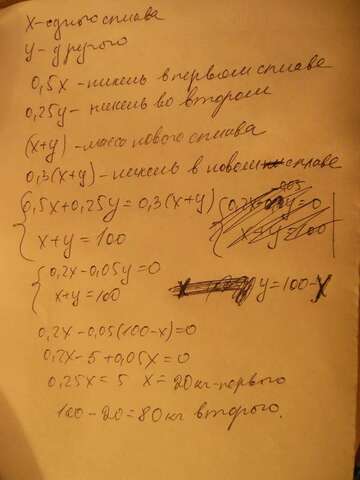 X-одного сплава
У-другого
0,5x - никель в первом сплаве
0,25y - никель во втором
(x+y) - масса нового сплава
0,3(x+y) - никель в новом сплаве
0,5x+0,25y=0,3(x+y)
x+y=100
0,2x-0,05y=0
x+y=100
y=100-x
0,2x-0,05(100-x)=0
0,2x-5+0,05x=0
0,25x=5 x=20кг-первого
100-20=80кг второго.